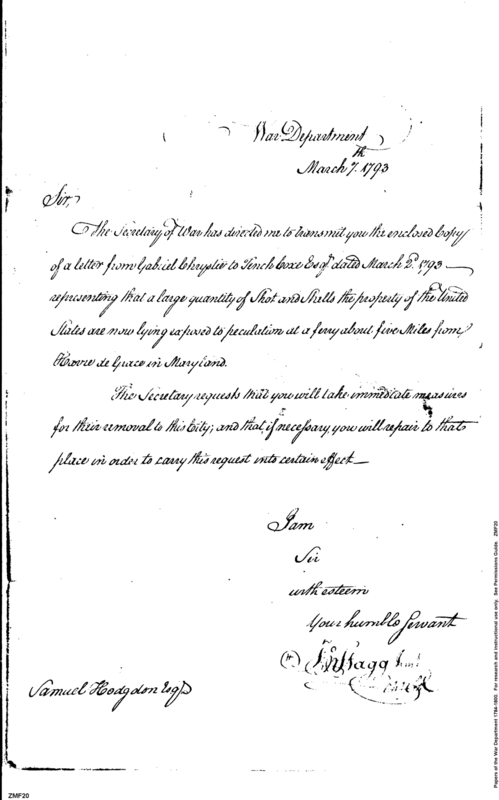 War Department
March 7th. 1793
Sir,
The Secretary of War has directed me to transmit you the enclosed Copy
of a letter from Gabriel Chrystie to Tench Coxe Esqr. dated March 2d. 1793 —
representing that a large quantity of Shot and Shells the property of the United
States are now lying exposed to peculation at a ferry about five Miles from
Havre de Grace in Maryland.
The Secretary requests that you will take immediate measures
for their removal to this City; and that, if necessary you will repair to that
place in order to carry this request into certain effect —
I am
Sir
with esteem
Your humble Servant
Jn. Stagg Junr.
Samuel Hodgdon Esqr.
ZMF20
Papers of the War Department 1784-1800. For research and instructional use only. See Permissions Guide. ZMF20